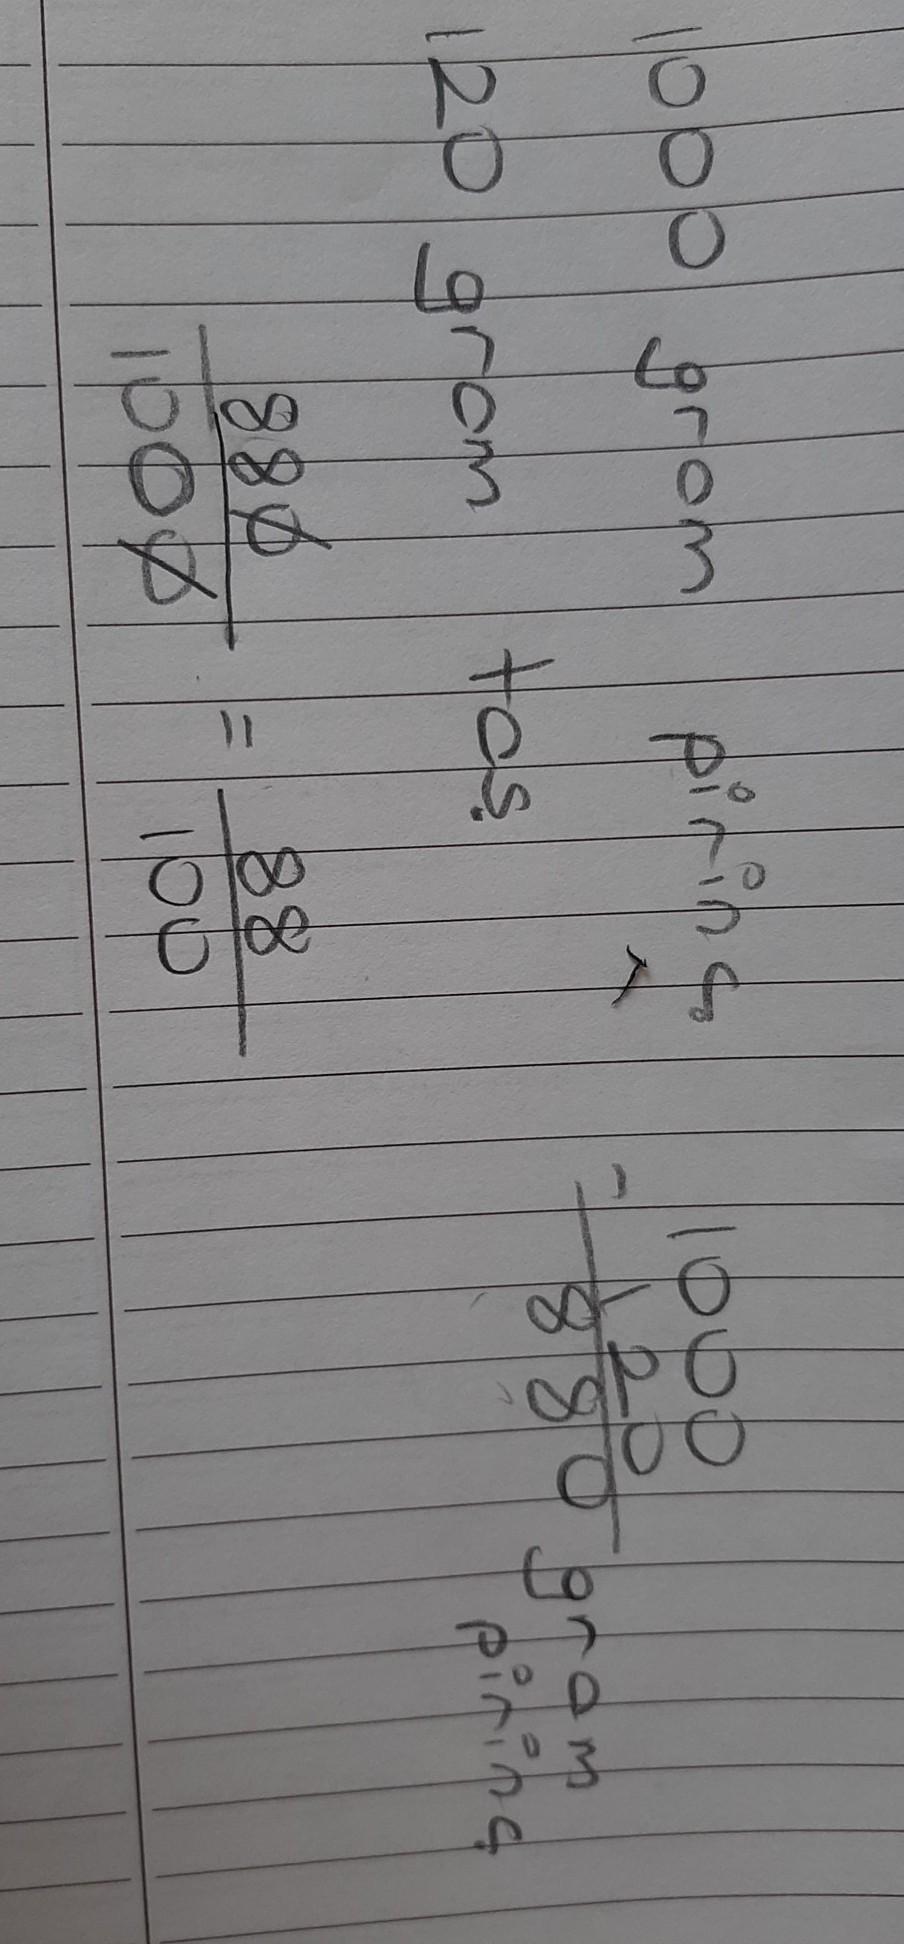 1000 gram pirinç
120 gram taş
1000
- 120
880 gram
pirinç
880
1000
=
88
100